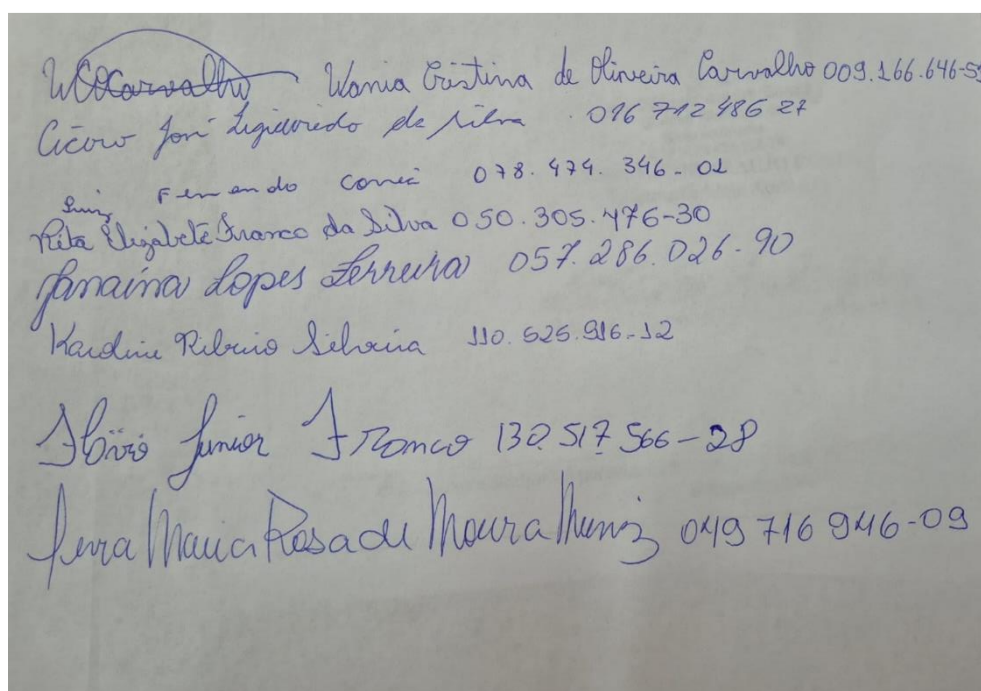 WCOCarvalho Wania Cristina de Oliveira Carvalho 009.166.646-5
Cícero José Figueiredo da Silva 096 712 486 27
Luiz Fernando Correia 078.474.346-01
Rita Elizabete Franco da Silva 050.305.476-30
Janaína Lopes Ferreira 057.286.026-90
Karoline Ribeiro Silveira 110.525.916-12
Flávio Junior Franco 130.517.566-28
Maria Rosa de Moura Muniz 049 716 946-09